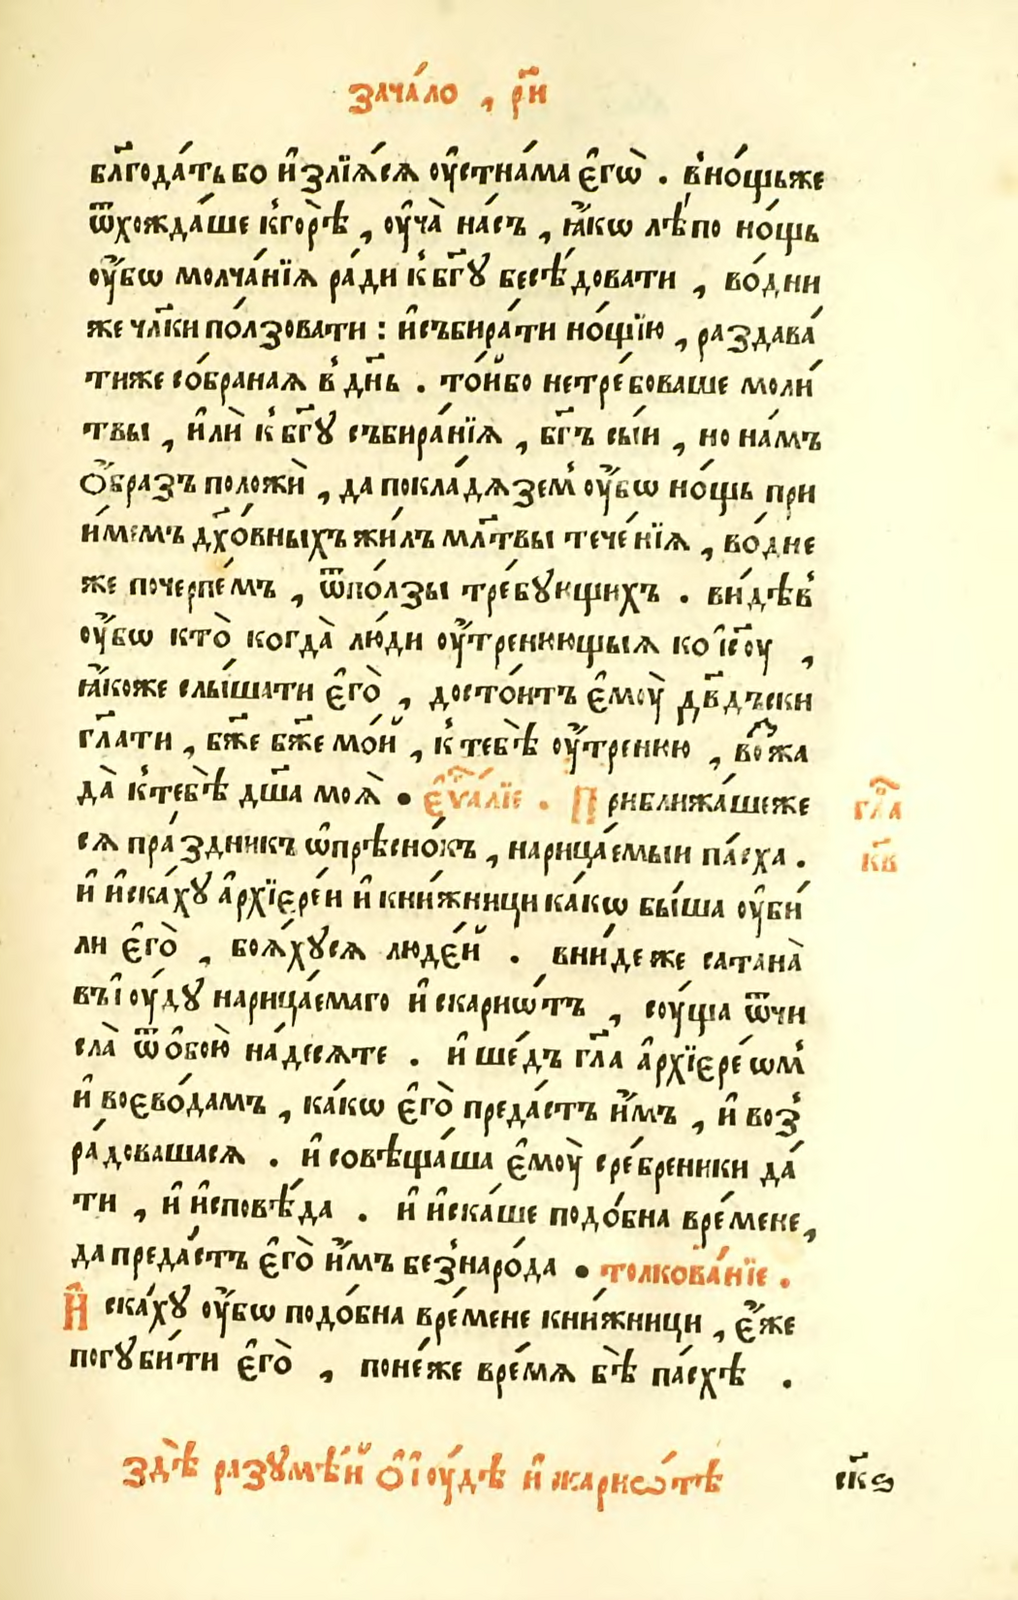 зача́ло , р҃и
бл҃года́ть бо и҆злїѧ́сѧ оу҆стна́ма є҆гѡ̀ . в̾но́щьже
ѿхожда́ше к̾горѣ̀ , оу҆ча̀ на́съ , ꙗ҆́кѡ лѣ́по но́щь
оу҆́бѡ молча́нїѧ ра́ди к̾ бг҃ꙋ бесѣ́довати , во́дни
же чл҃ки по́лзовати : и҆събира́ти но́щїю , раздава́
тиже со́бранаѧ в̾ дн҃ь . то́йбо нетре́боваше моли́
твы , и҆лѝ к̾ бг҃ꙋ събира́нїѧ , бг҃ъ сы́и , но на́мъ
ѻ҆́бразъ положѝ , да покла́дѧзем̾ оу҆́бѡ но́щь при
и́мемъ дх҃о́вныхъ жи́лъ мл҃твы тече́нїѧ , во́дне
же поче́рпемъ , ѿпо́лзы тре́бꙋющихъ . ви́дѣв̾
оу҆́бѡ кто̀ когда̀ лю́ди оу҆́тренюющыѧ ко і҆с҃оу ,
ꙗ҆́коже слы́шати є҆го̀ , досто́итъ є҆моу̀ дв҃дъски
гл҃ати , бж҃е бж҃е мо́й , к̾ тебѣ̀ оу҆́тренюю , во́зжа
да̀ к̾тебѣ̀ дш҃а моѧ̀ • є҆ѵⷢ҇а́лїе . Приближа́шеже
сѧ пра́здникъ ѡ҆прѣсно́къ , нарица́емыи па́сха .
и҆ и҆ска́хꙋ а҆рхїєре́и и҆ кни́жницы ка́кѡ бы́ша оу҆би́
ли є҆го̀ , боѧ́хꙋсѧ люде́й . вни́деже сатана̀
въ і҆оу́дꙋ нарица́емаго и҆скарио́тъ , соу́ща ѿчи
сла̀ ѿѻ҆бою̀ на́десѧте . и҆ ше́дъ гл҃а а҆рхїєре́ѡм̾
и҆ воєво́дамъ , ка́кѡ є҆го̀ преда́стъ и҆̀мъ , и҆ воз̾
ра́довашасѧ . и҆ совѣща́ша є҆моу̀ сре́бреники да́
ти , и҆ и҆сповѣ́да . и҆ и҆ска́ше подо́бна вре́мене ,
да преда́стъ є҆го̀ и҆̀мъ без̾наро́да • толкова́нїе .
И҆ска́хꙋ оу҆́бѡ подо́бна вре́мене кни́жницы , є҆́же
погꙋби́ти є҆го̀ , поне́же вре́мѧ бѣ̀ па́схѣ .
гл҃а
к҃в
здѣ̀ разꙋмѣ́й ѻ҆ і҆оу́дѣ и҆скарио́тѣ
ск҃ѕ